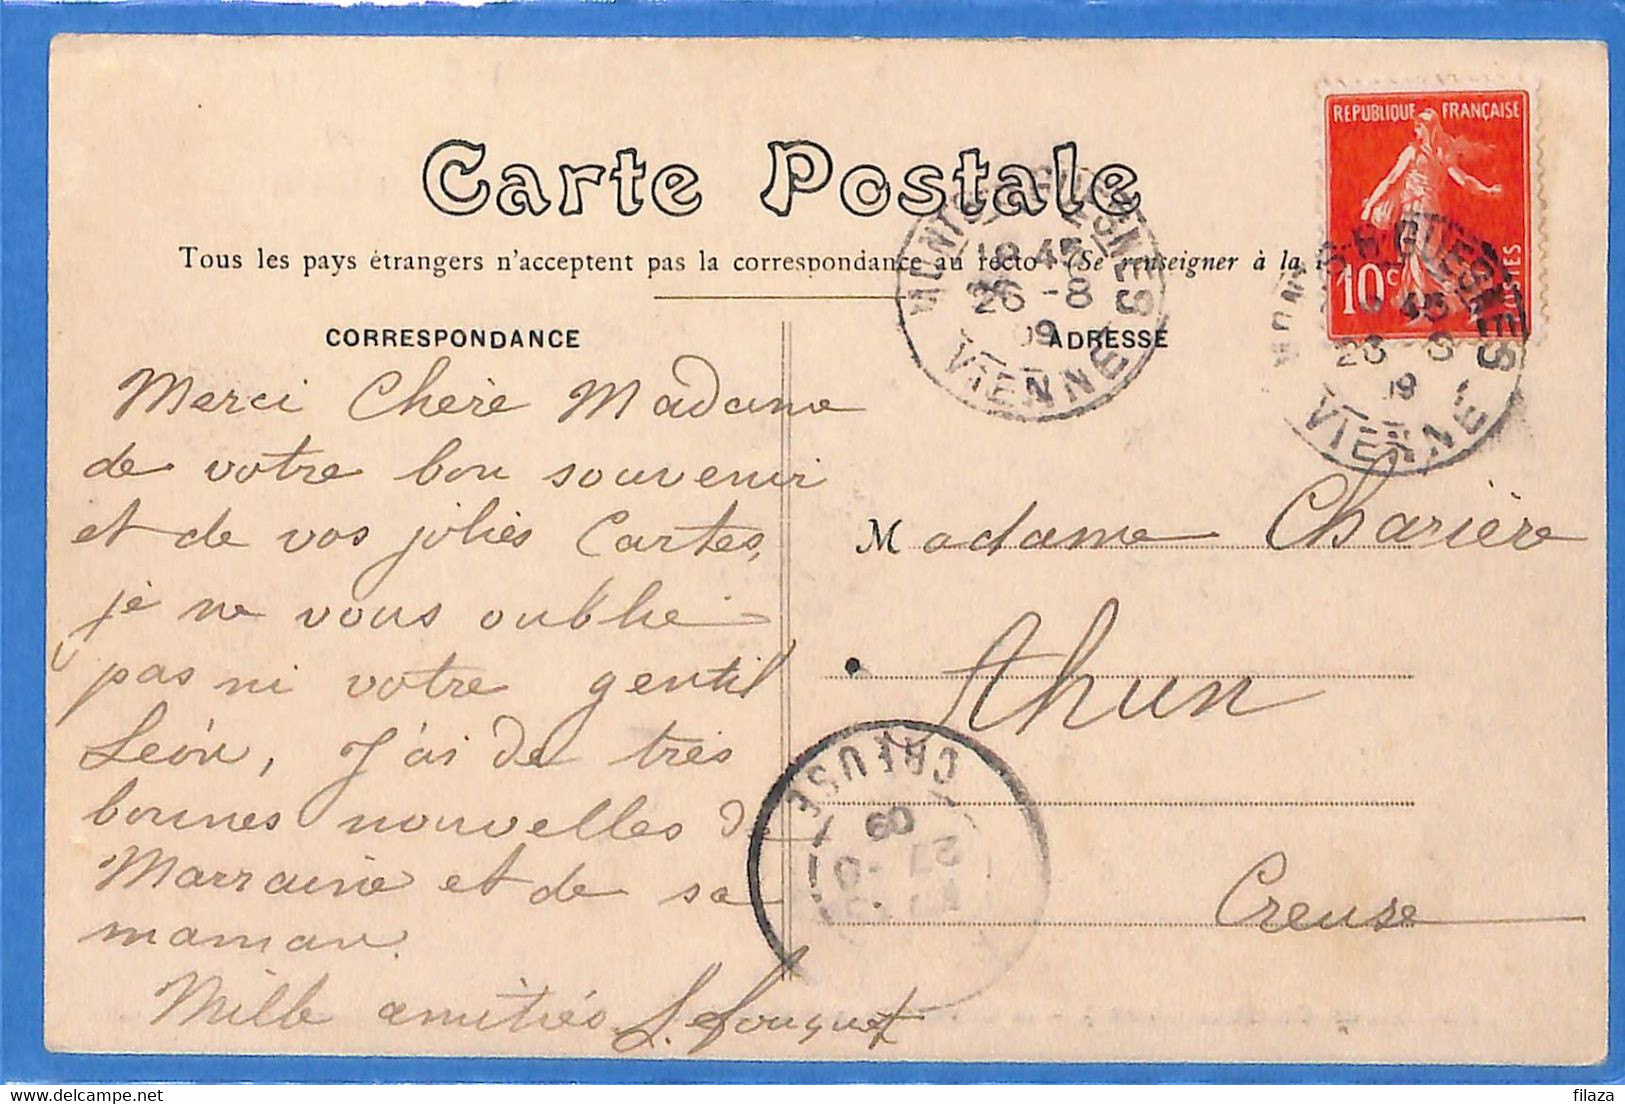 Carte Postale
Tous les pays étrangers n'acceptent pas la correspondance au recto (Se renseigner à la
CORRESPONDANCE
Merci Chère Madame
de votre bon souvenir
et de vos jolies Cartes,
je ne vous oublie
pas ni votre gentil
Léon, J'ai de très
bonnes nouvelles de
Marraine et de sa
maman.
Mille amitiés L. Lefouquet
ADRESSE
Madame Charière
Ahun
Creuse
REPUBLIQUE FRANÇAISE
10c
POSTES
GUESNES
26 - 8
09
VIENNE
GUESNES
26
09
VIENNE
CREUSE
27
09
filaza